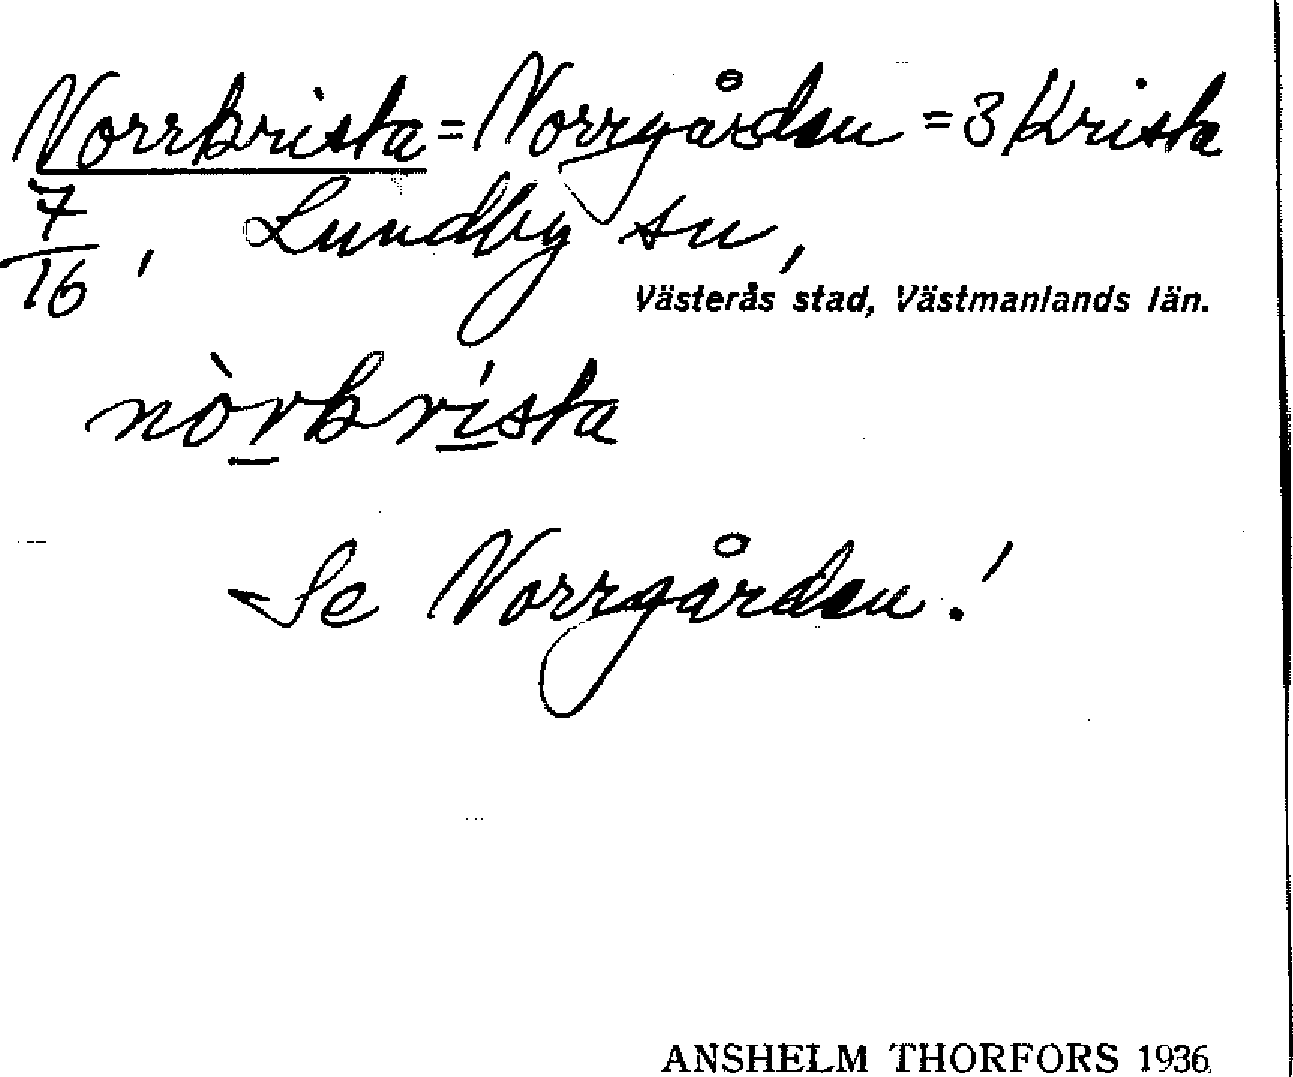 Norrkrista = Norrgården = 3 Krista
7/16, Lundby sn,
Västerås stad, Västmanlands län.
nòrkrísta
Se Norrgården!
ANSHELM THORFORS 1936